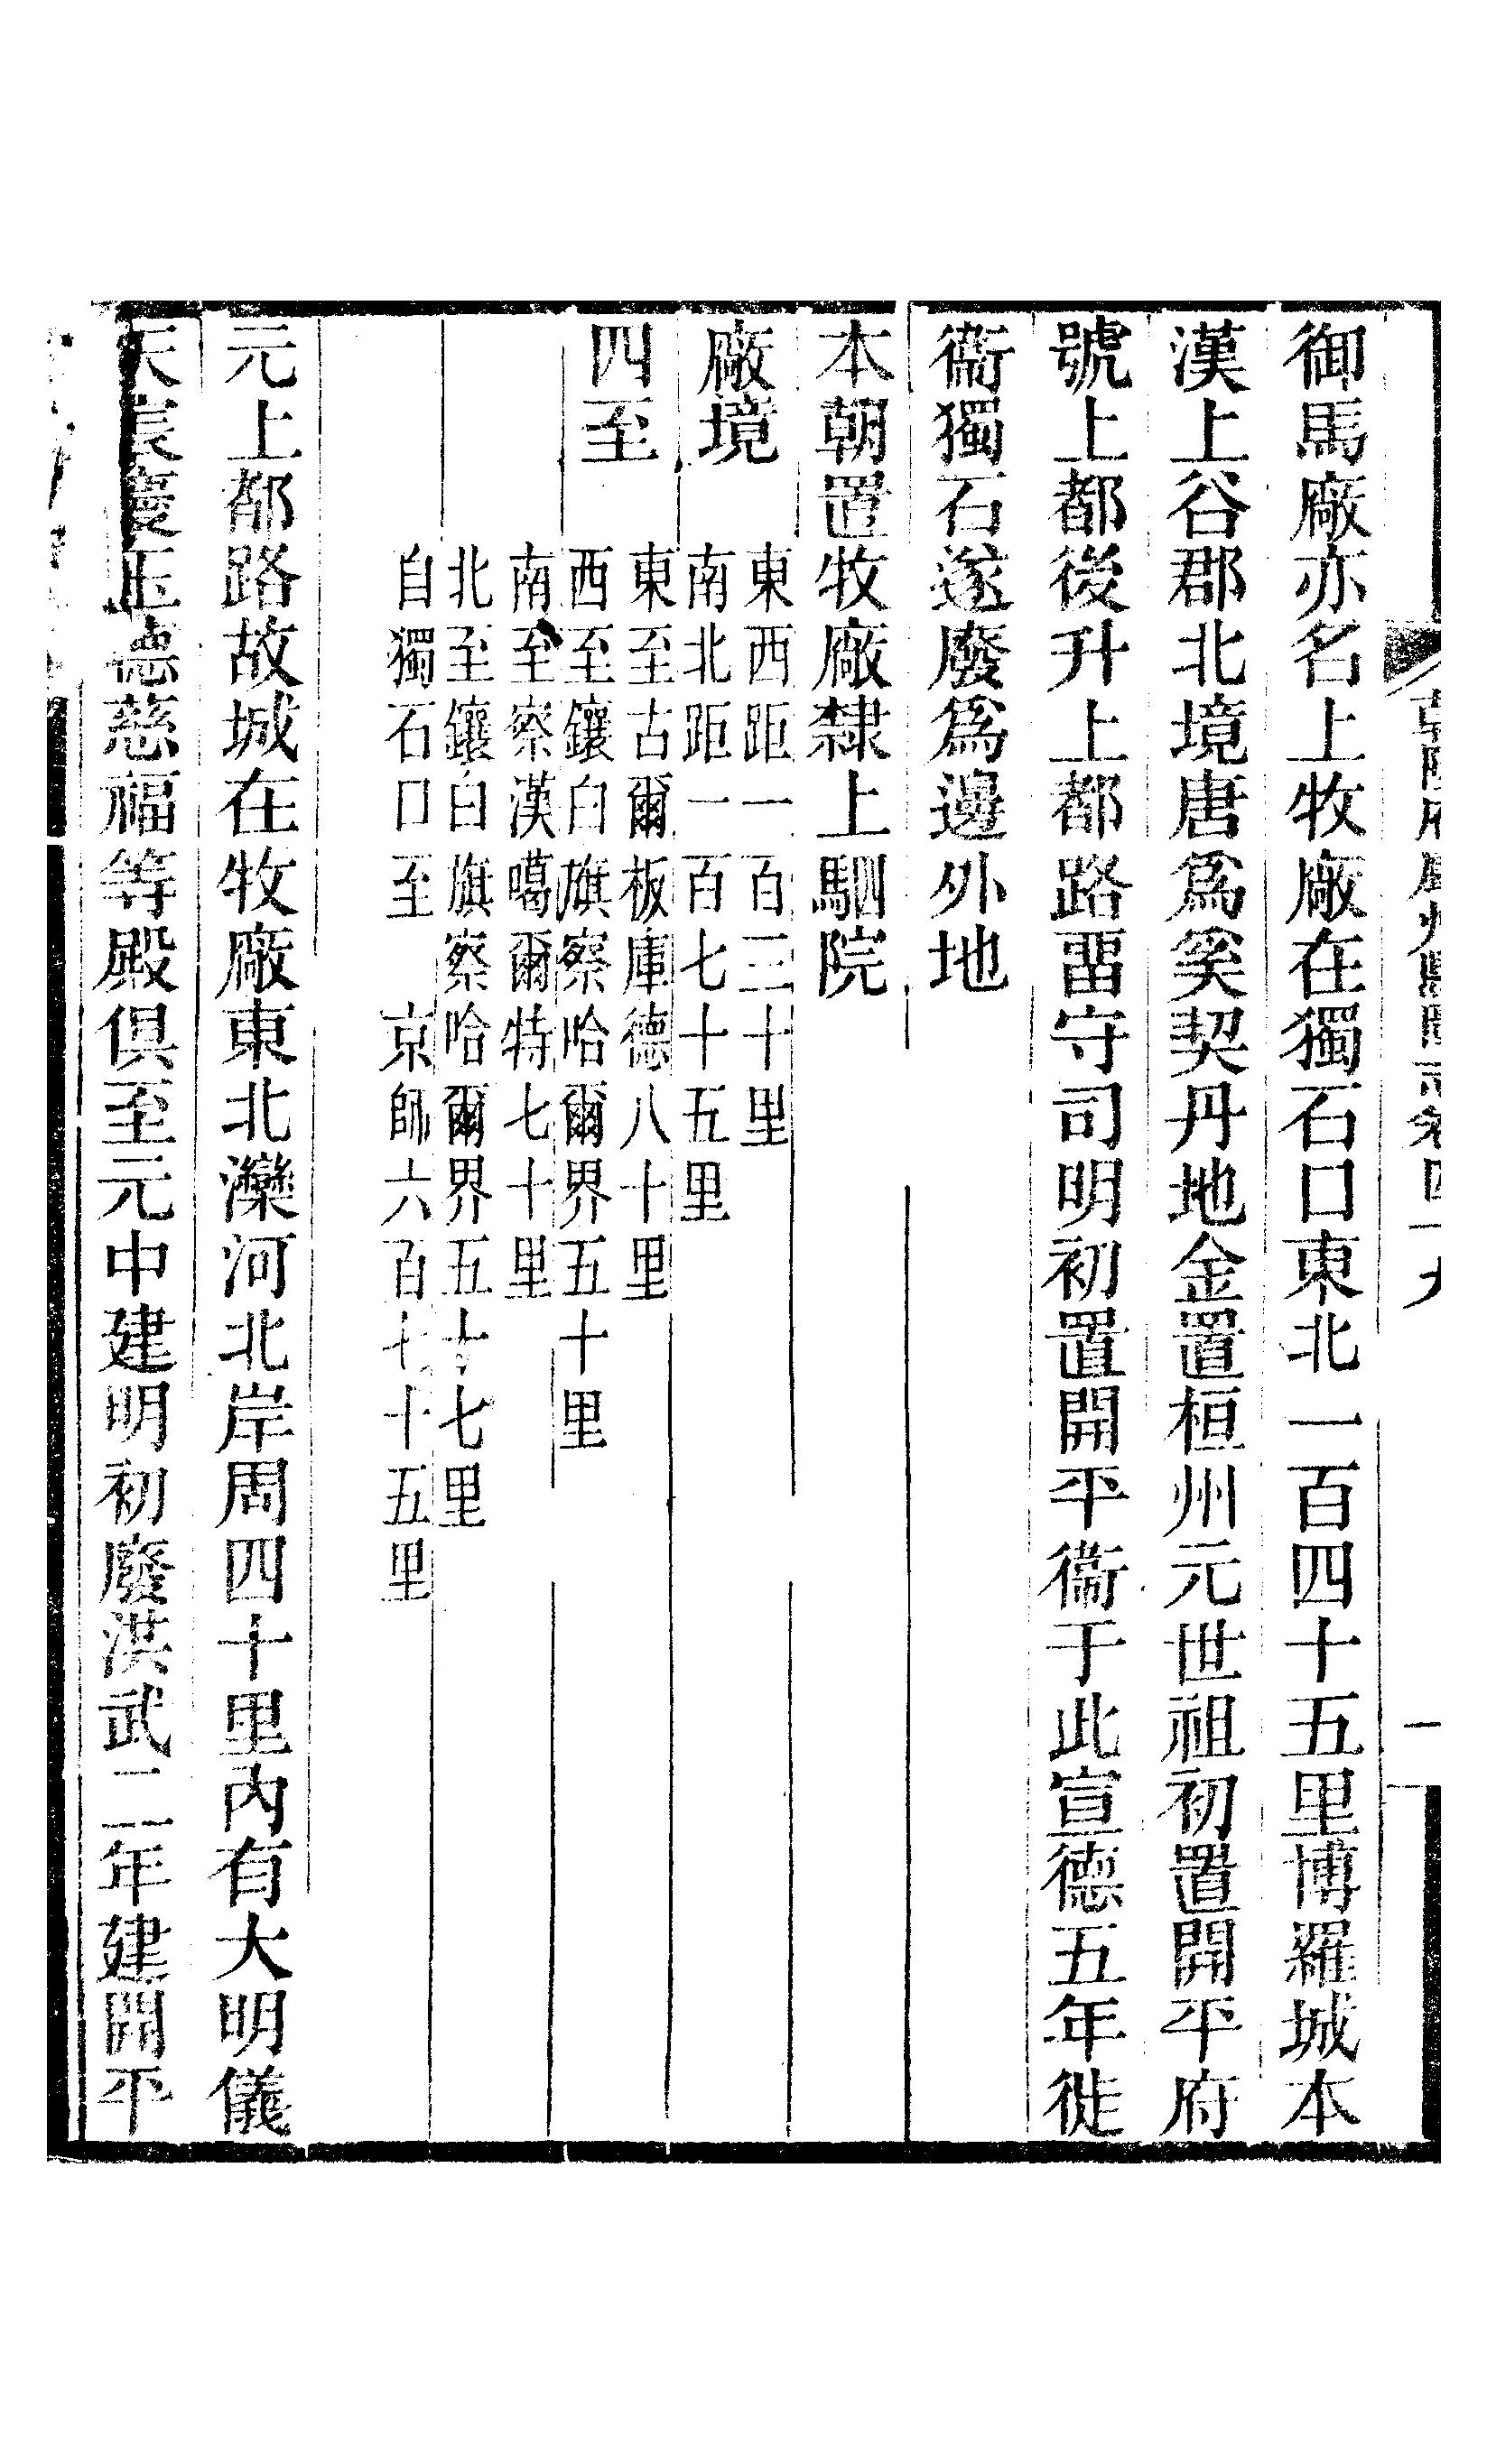 乾隆府廳州縣圖志卷四十九 一
御馬廠亦名上牧廠在獨石口東北一百四十五里博羅城本
漢上谷郡北境唐爲奚契丹地金置桓州元世祖初置開平府
號上都後升上都路畱守司明初置開平衞于此宣德五年徙
衞獨石遂廢爲邊外地
本朝置牧廠隸上駟院
廠境
東西距一百三十里
南北距一百七十五里
四至
東至古爾板庫德八十里
西至鑲白旗察哈爾界五十里
南至察漢噶爾特七十里
北至鑲白旗察哈爾界五十七里
自獨石口至 京師六百七十五里
元上都路故城在牧廠東北灤河北岸周四十里內有大明儀
天宸慶玉德慈福等殿俱至元中建明初廢洪武二年建開平